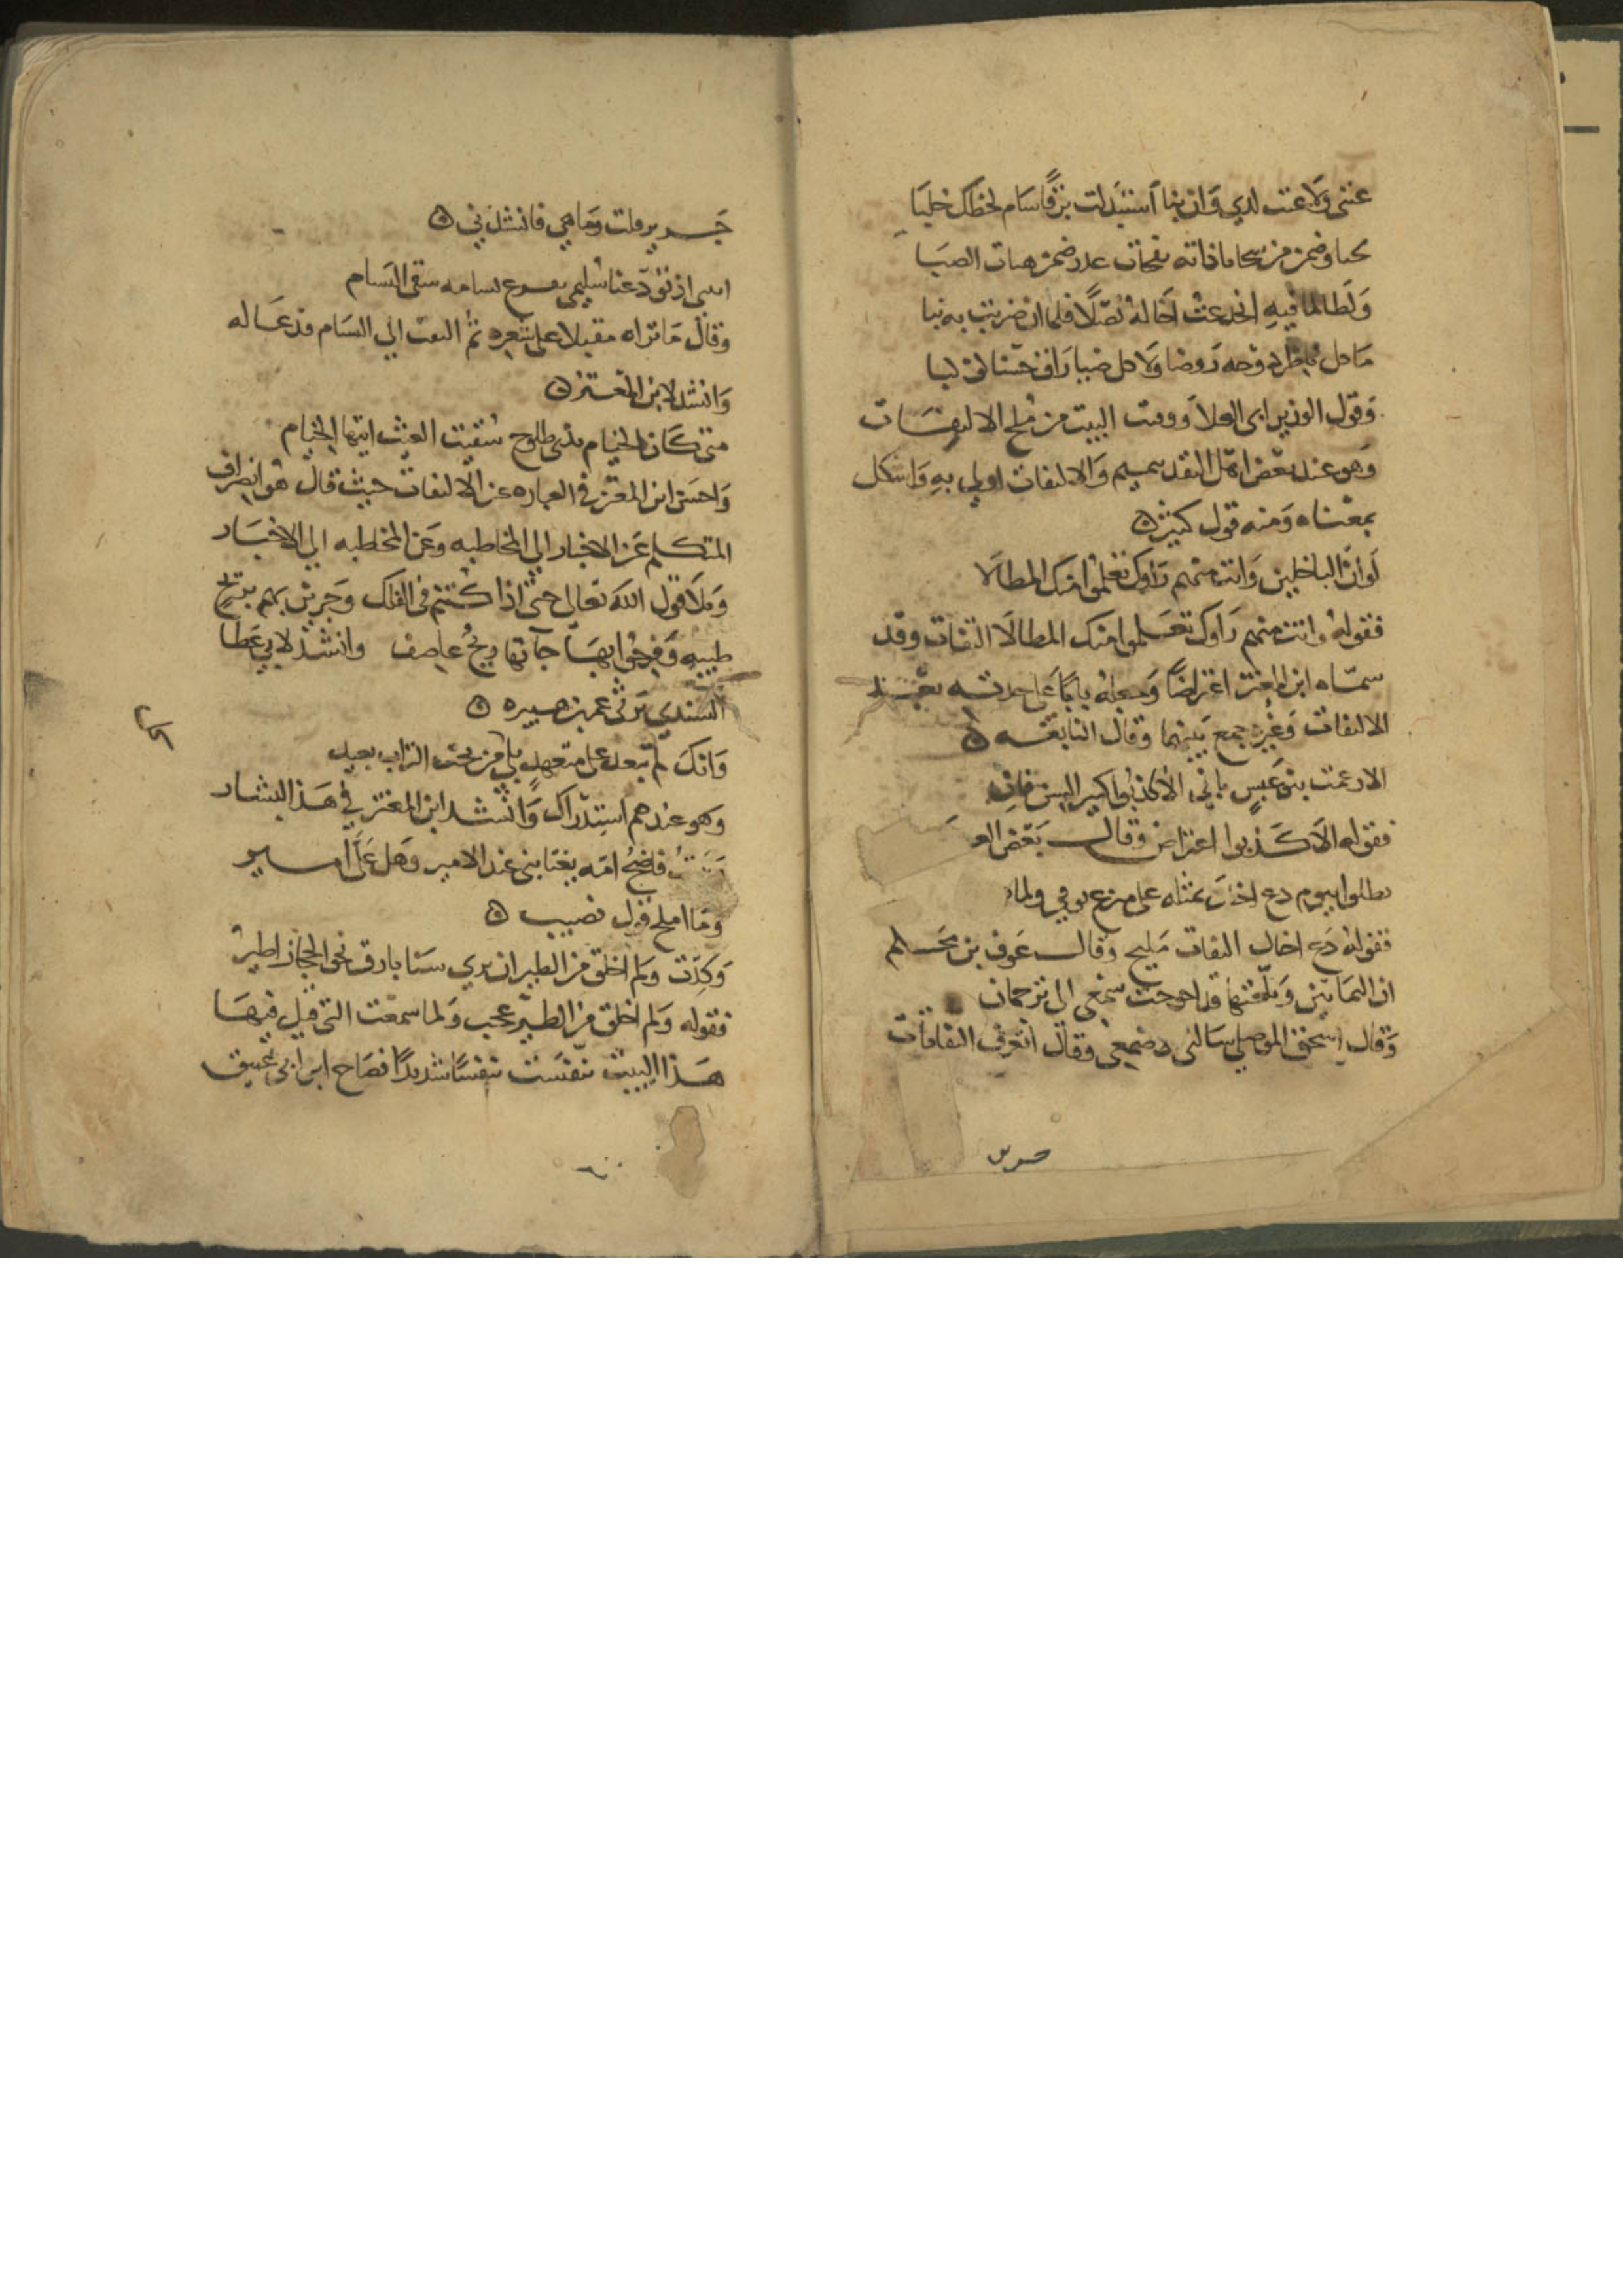 عنى ولا عنت لدي وان نبا استبدلت برقا سام لحظك خلبا
نفحات هبات الصبا
ولطالما فيه انخدعت اخاله نصلا فلما ان ضربت به نبا
ما حل روضا ولا حل
وقول الوزير ابى العلا ووقت البيت من ملح الالتفات
وهو عند بعض اهل النقد تتميم والالتفات اولى به واشكل
بمعناه ومنه قول كثير
لو ان الباخلين وانت منهم راوك تعلموا منك المطالا
فقوله وانت منهم راوك تعلموا منك المطالا التفات وقد
سماه ابن المعتز اعتراضا وجعله بابا على حدته بعد
الالتفات وغيره جمع بينهما وقال النابغة
الا زعمت بنو عبس باني الا كذبوا كبير السن فان
فقوله الا كذبوا اعتراض وقال بعض العر
فظلوا بيوم دع اخاك بمثله على مشرع يروي ولما
فقوله دع اخاك التفات مليح وقال عوف بن محلم
ان الثمانين وبلغتها قد احوجت سمعي الى ترجمان
وقال اسحق الموصلي سالنى الاصمعي وقال اتعرف التفاتات
جرير
جرير قلت وما هي فانشدني
اتنسى اذ تودعنا سليمى بفرع بشامه سقى البشام
وقال ما تراه مقبلا على شعره ثم التفت الى البشام فدعا له
وانشد لابن المعتز
متى كان الخيام بذى طلوح سقيت الغيث ايتها الخيام
واحسن ابن المعتز في العباره عن الالتفات حيث قال هو انصراف
المتكلم عن الاخبار الى المخاطبه وعن المخاطبه الى الاخبار
وتلا قول الله تعالى حتى اذا كنتم في الفلك وجرين بهم بريح
طيبه وفرحوا بها جآتها ريح عاصف وانشد لابي عطا
السندي يرثى عمر بن هبيره
وانك لم تبعد على متعهد بلى من تحت التراب بعيد
وهو عندهم استدراك وانشد ابن المعتز في هذا لبشار
فاضح امه يغتابنى عند الامير وهل على امير
وما املح قول نصيب
وكدت ولم اخلق من الطير ان بدى سنا بارق نحو الحجاز اطير
فقوله ولم اخلق من الطير عجب ولما سمعت التى قيل فيها
هذا البيت تنفست تنفسا شديدا فصاح ابن ابى عتيق